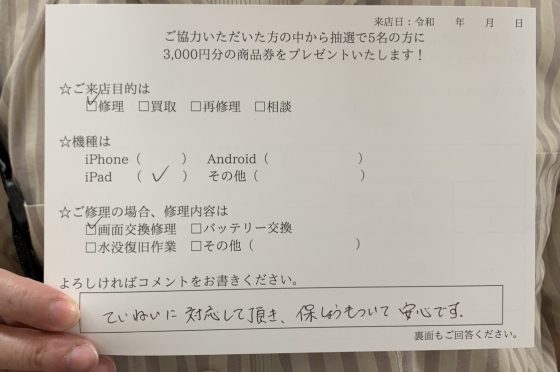 来店日：令和　　年　　月　　日
ご協力いただいた方の中から抽選で5名の方に
3,000円分の商品券をプレゼントいたします！
☆ご来店目的は
☑修理　□買取　□再修理　□相談
☆機種は
iPhone（　　　）　Android（　　　　　　　）
iPad　（　✓　）　その他（　　　　　　　　）
☆ご修理の場合、修理内容は
☑画面交換修理　□バッテリー交換
□水没復旧作業　□その他（　　　　　　　　）
よろしければコメントをお書きください。
ていねいに対応して頂き、保しょうもついて安心です。
裏面もご回答ください。